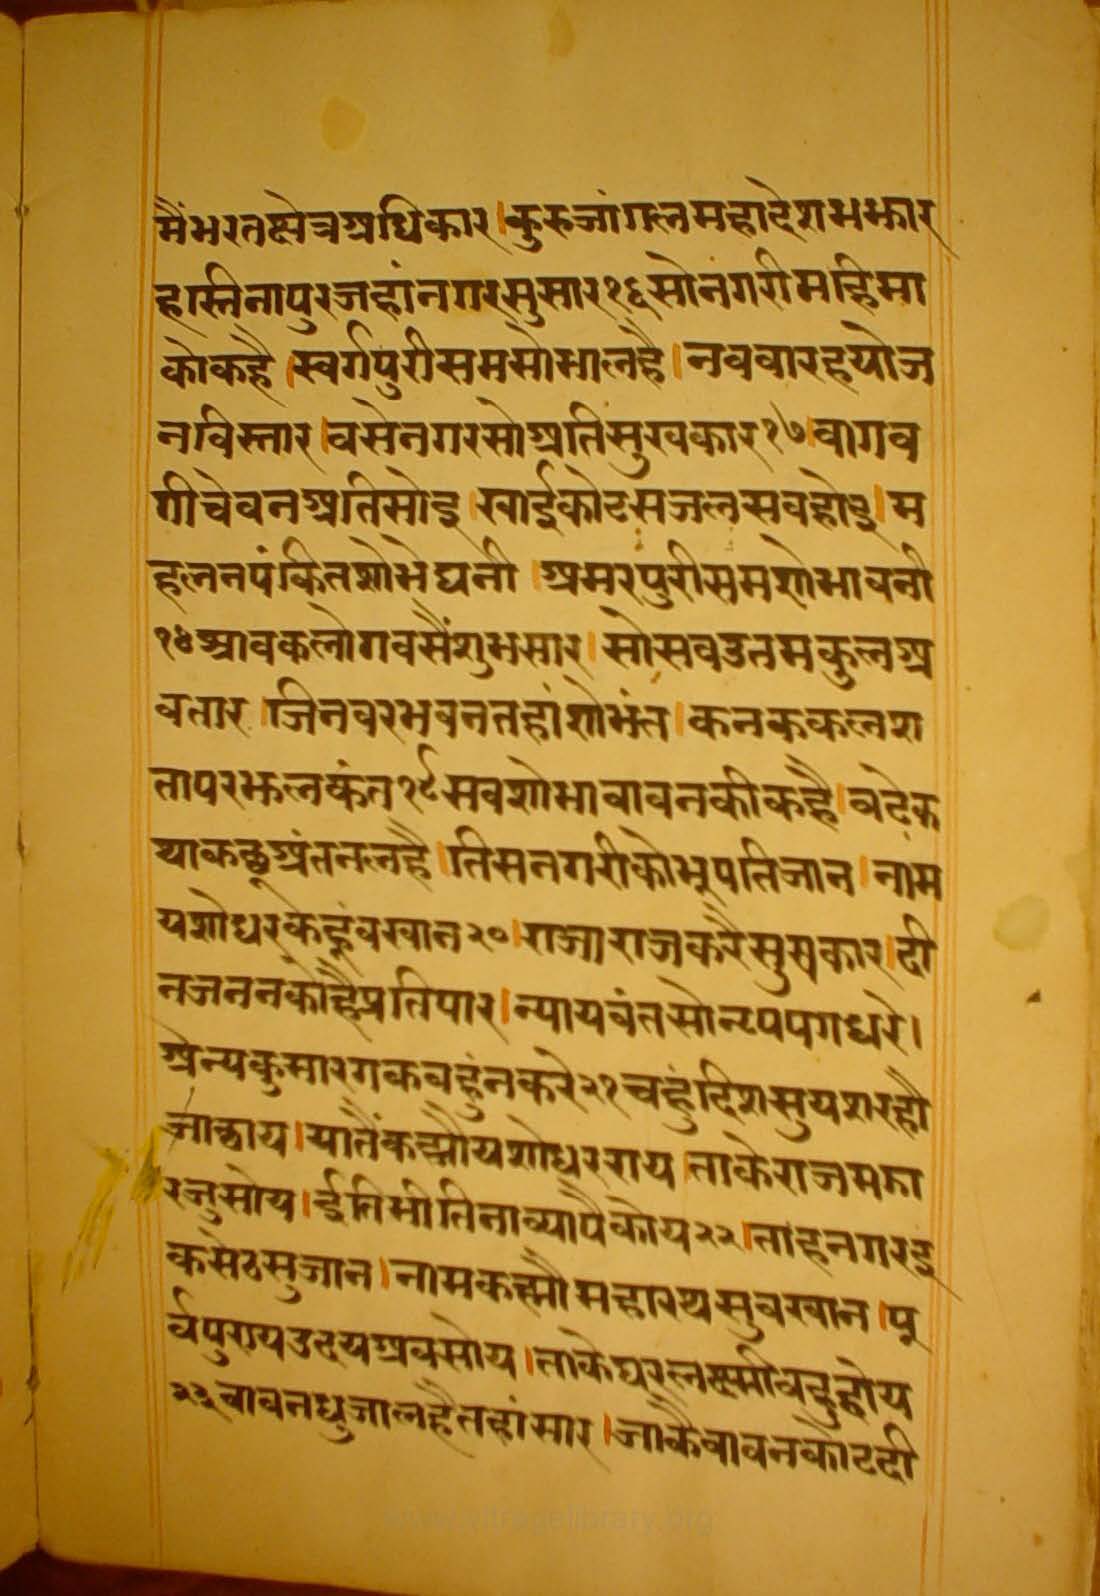 मैंभरतक्षेत्रअधिकार।कुरुजांगलमहादेशमझार
हास्तिनापुरजहांनगरसुसार१६सोनगरीमहिमा
कोकहै।स्वर्गपुरीसमसोभालहै।नववारहयोज
नविस्तार।वसेनगरसोअतिसुखकार१७।वागव
गीचेवनअतिसोइ।खाईकोटसजलसवहोइ।म
हलनपंकितशोभेघनी।अमरपुरीसमशोभावनी
१८श्रावकलोगवसैंशुभसार।सोसवउतमकुलअ
वतार।जिनवरभवनतहांशोभंत।कनककलश
तापरझलकंत१९सवशोभावावनकीकहै।वढेक
थाकछूअंतनलहै।तिसनगरीकोभूपतिजान।नाम
यशोधरकेहूंवखान२०।राजाराजकरैसुखकार।दी
नजननकोहैप्रतिपार।न्यायवंतसोनृपपगधरे।
अन्यकुमारगकवहुंनकरे२१चहुंदिशसुयशरहौ
जाछाय।यातैंकह्यौयशोधरराय।ताकेराजमझा
रजुसोय।ईतिभीतिनाव्यापैकोय२२।ताहनगरइ
कसेठसुजान।नामकह्यौमहारथसुवखान।पू
र्वपुण्यउदयअवसोय।ताकेघरलक्ष्मीवहुहोय
२३वावनधुजालहैतहांसार।जाकैवावनकोटदी